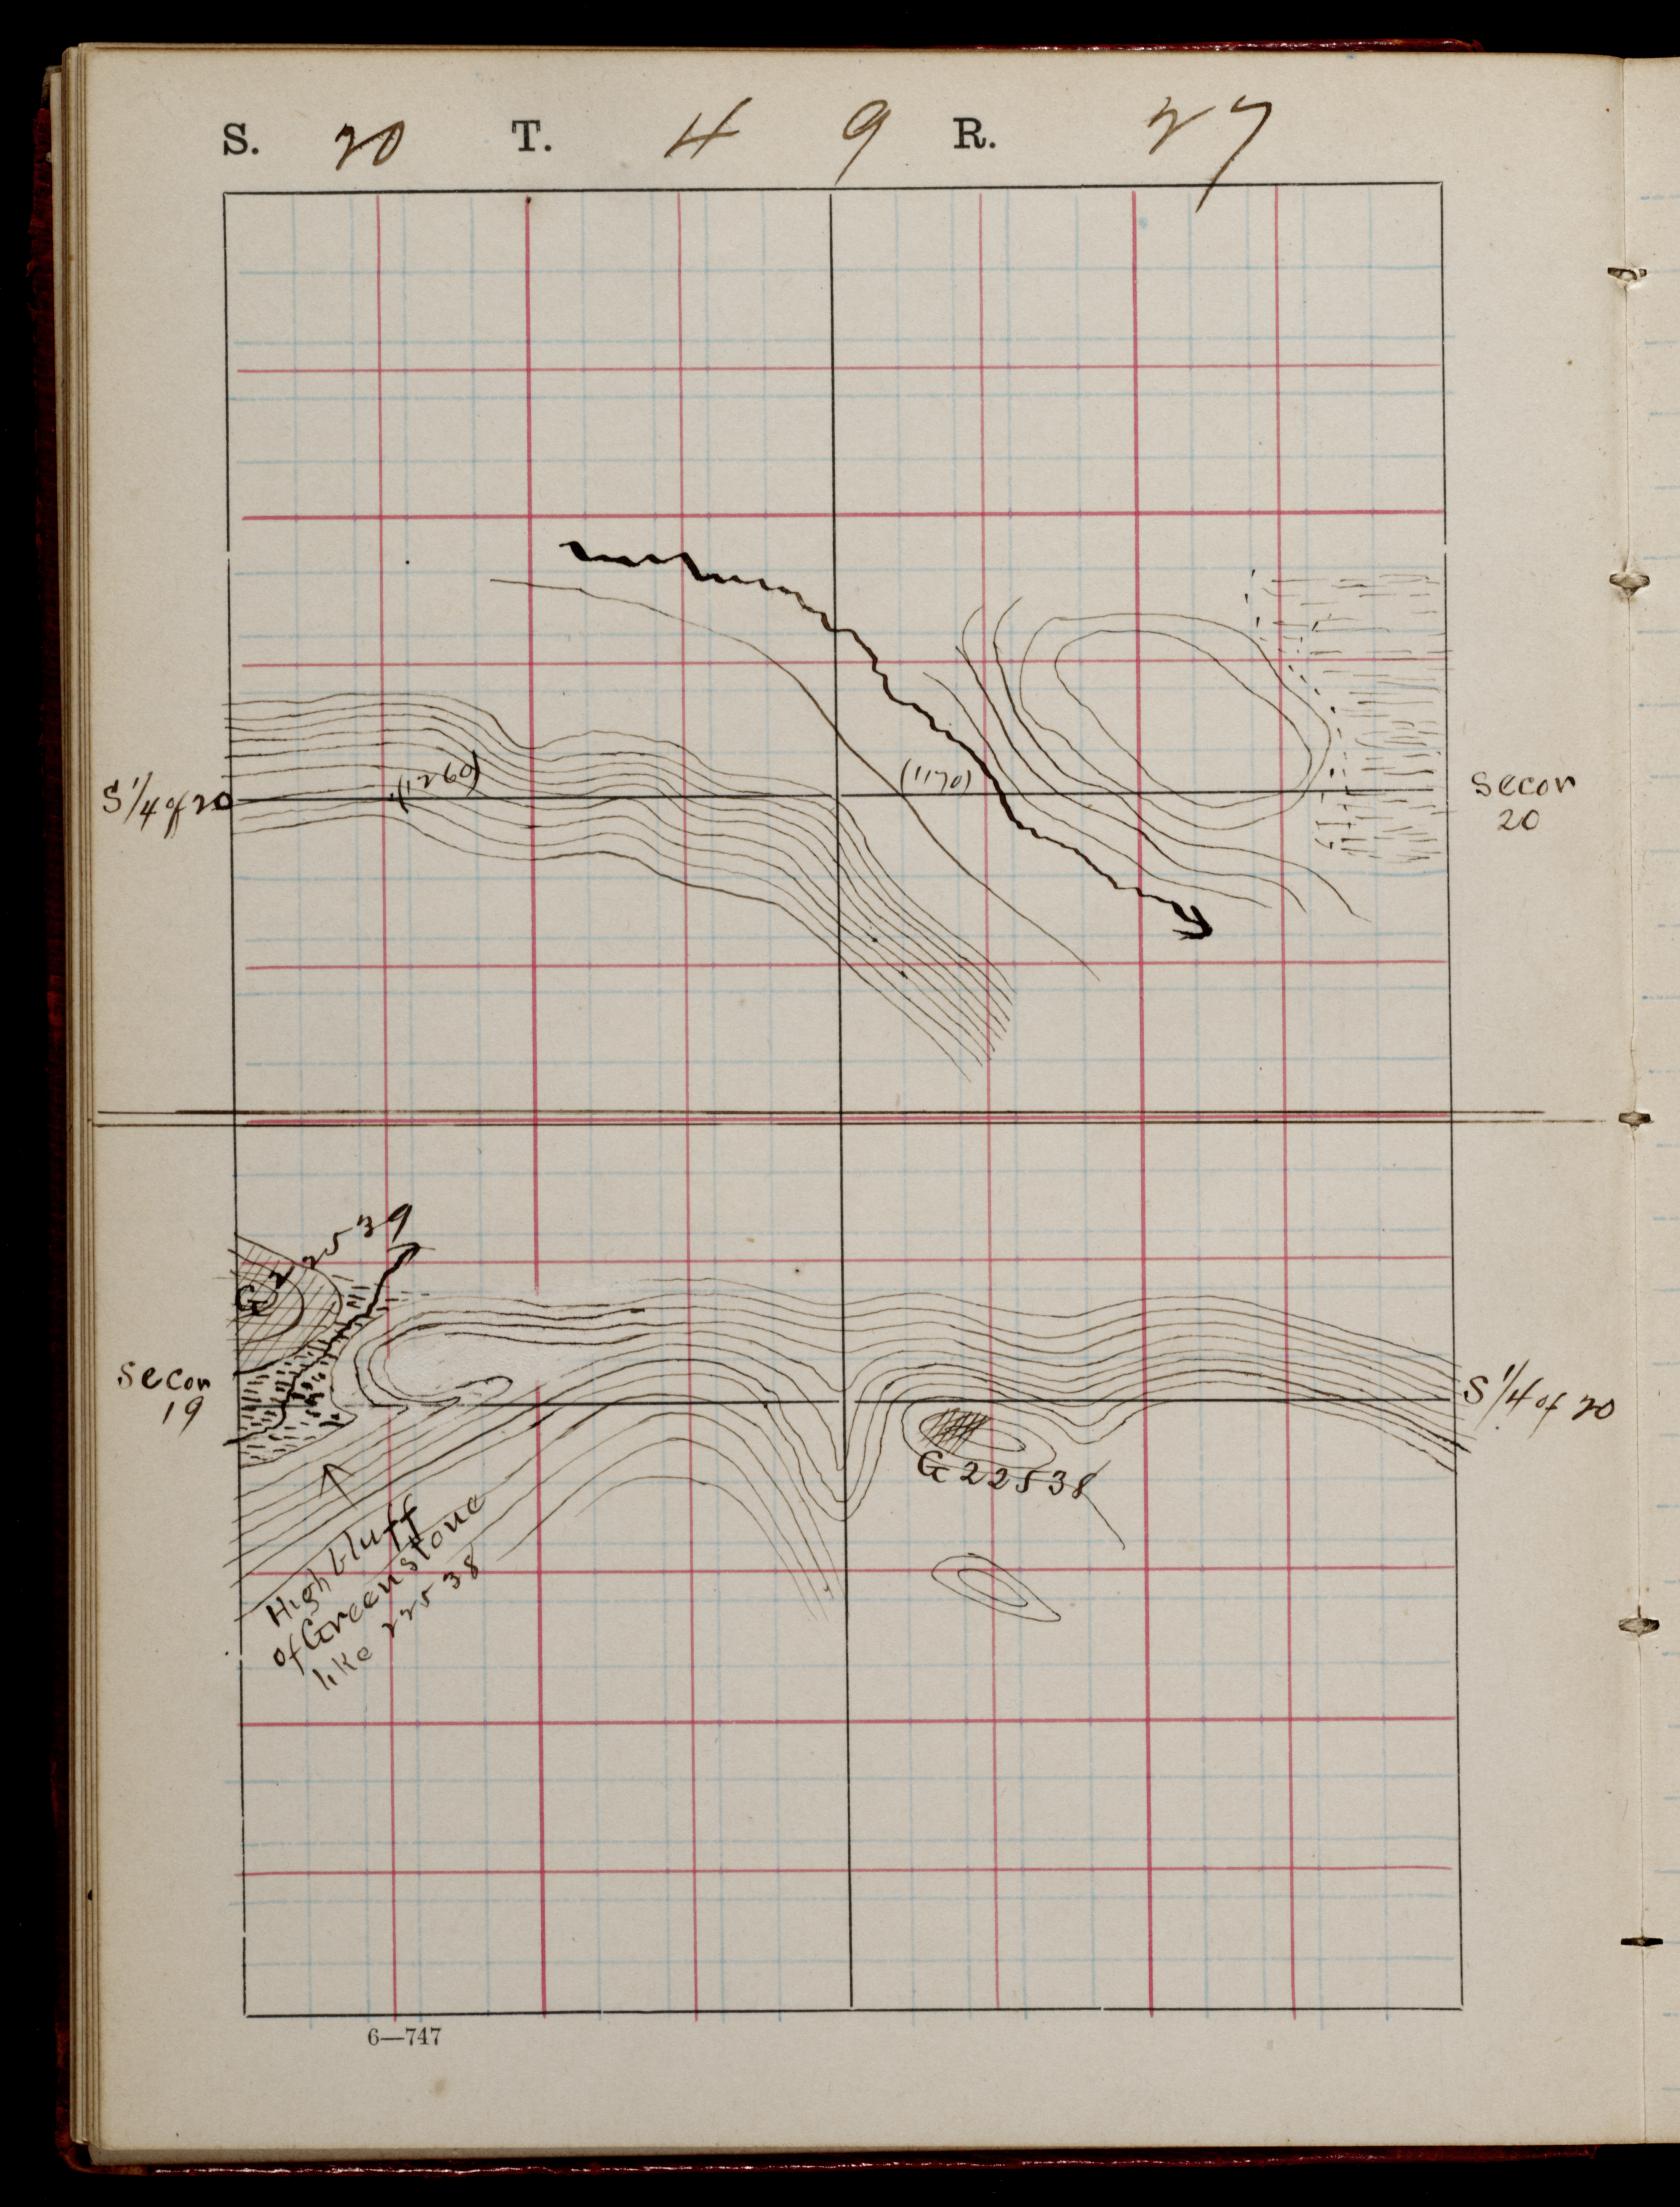 S. 20 T. 49 R. 27
(1260)
S 1/4 of 20
(1170)
Secor
20
G 22539
Secor
19
S 1/4 of 20
G 22538
High bluff
of Greenstone
like 22538
6—747